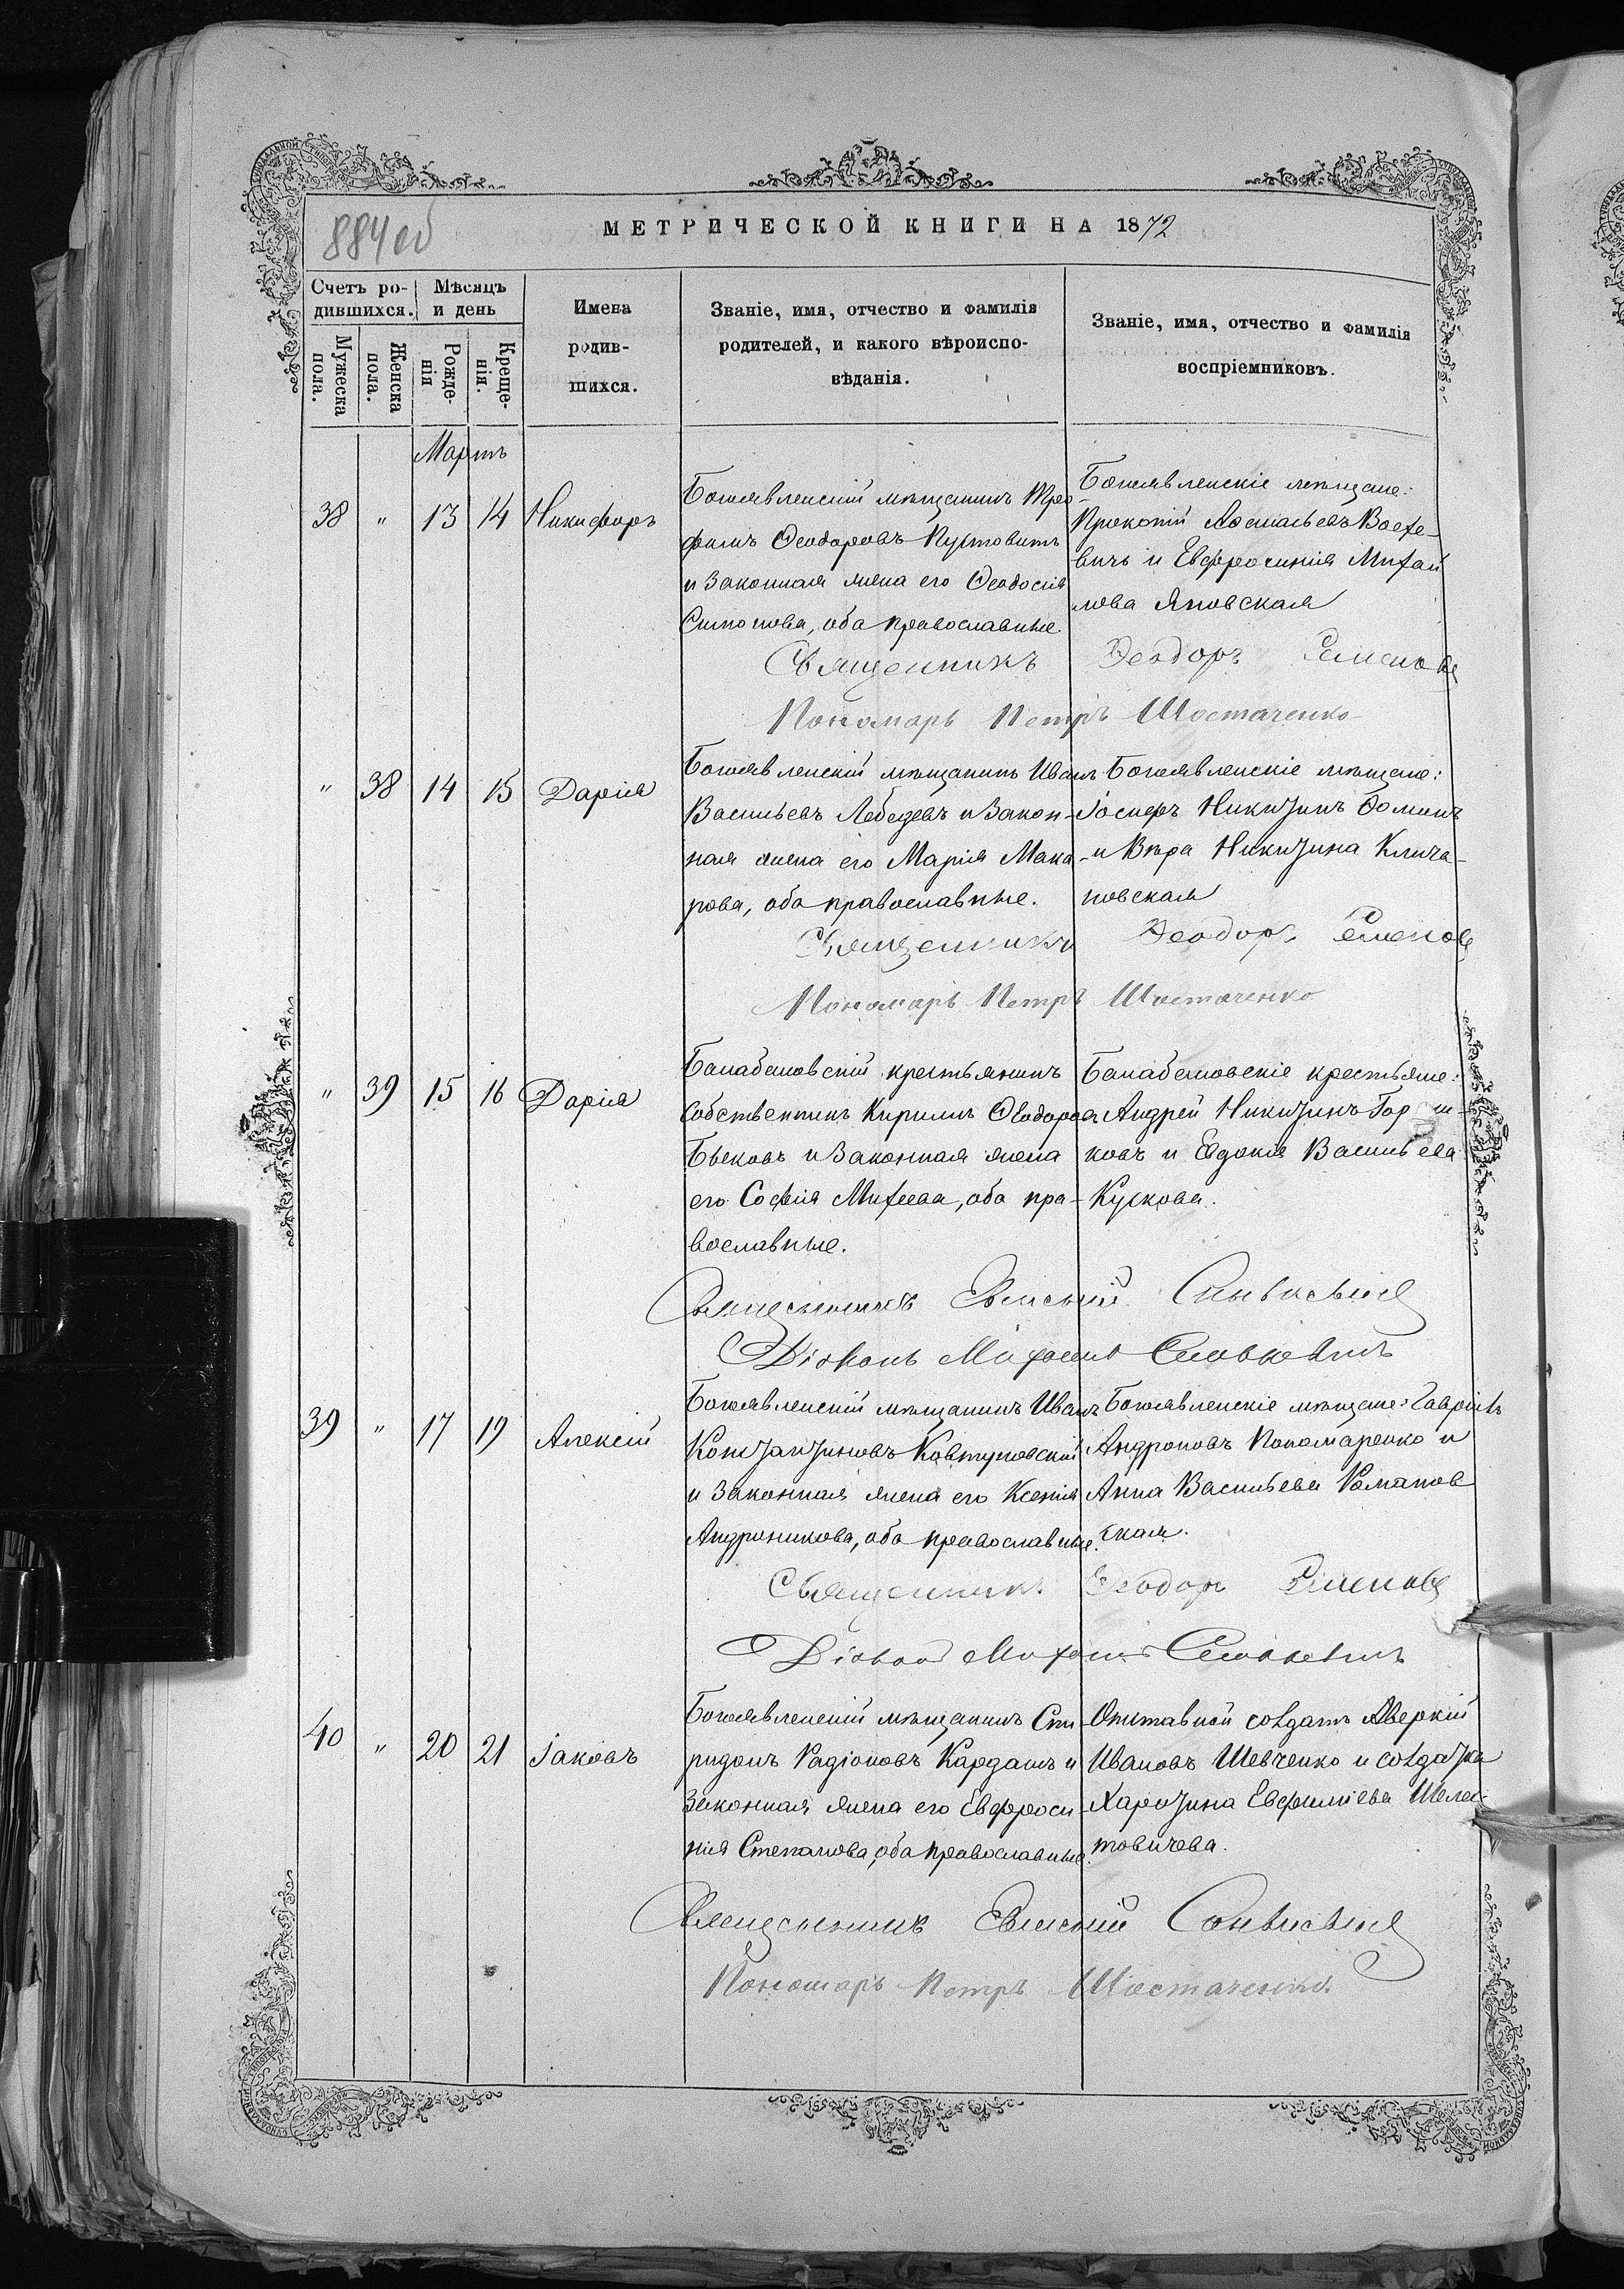 884 об
МЕТРИЧЕСКОЙ КНИГИ НА 1872
Счетъ ро-
дившихся.
Мужеска
пола.
Женска
пола.
Мѣсяцъ
и день
Рожде-
нія
Креще-
нія.
Имена
родив-
шихся.
Званіе, имя, отчество и фамилія
родителей, и какого вѣроиспо-
вѣданія.
Званіе, имя, отчество и фамилія
воспріемниковъ.
Мартъ
38 " 13 14 Никифоръ
Богоявленскій мѣщанинъ Тро-
фимъ Ѳеодоровъ Пустовитъ
и законная жена его Ѳеодосія
Симонова, оба православные.
Богоявленскіе мѣщане:
Прокопій
вичъ и Евфросинія Михай
лова Яновская
Священникъ Ѳеодоръ Семеновъ
Пономарь Петръ Шостаченко
" 38 14 15 Дарія
Богоявленскій мѣщанинъ Иванъ
Васильевъ Лебедевъ и закон-
ная жена его Марія Мака-
рова, оба православные.
Богоявленскіе мѣщане:
Іосифъ Никитинъ Ѳоминъ
и Вѣра Никитина
новская
Священникъ Ѳеодоръ Семеновъ
Пономарь Петръ Шостаченко
" 39 15 16 Дарія
Балабановскій крестьянинъ
собственникъ Кириллъ Ѳеодоровъ
Быковъ и законная жена
его Софія Михеева, оба пра-
вославные.
Балабановскіе крестьяне:
Андрей Никитинъ
ковъ и Евдокія Васильева
Кускова.
Священникъ Евменій
Діаконъ Михаилъ
39 " 17 19 Алексій
Богоявленскій мѣщанинъ Иванъ
Константиновъ Ковтуновскій
и законная жена его Ксенія
Андроникова, оба православные.
Богоявленскіе мѣщане: Гавріилъ
Андроновъ Пономаренко и
Анна Васильева Романов
ская.
Священникъ Ѳеодоръ Семеновъ
Діаконъ Михаилъ
40 " 20 21 Іаковъ
Богоявленскій мѣщанинъ Спи-
ридонъ Радіоновъ Кардашъ и
законная жена его Евфроси-
нія Степанова, оба православные.
Отставной солдатъ Аверкій
Ивановъ Шевченко и солдатка
Харитина Евфиміева Шеле-
товичева.
Священникъ Евменій
Пономарь Петръ Шостаченко.